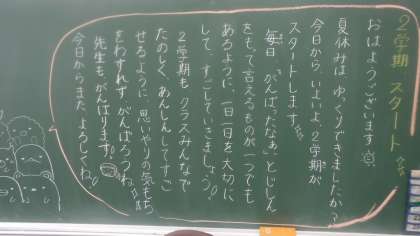 ２学期 スタート
おはようございます
夏休みは ゆっくりできましたか？
今日からいよいよ、２学期が
スタートします。
毎日 がんばったなぁ」とじしん
をもって言えるものが一つでも
あるように、一日一日を大切に
して、すごしていきましょう。
２学期も クラスみんなで
たのしく、あんしんしてすご
せるように 思いやりの気もち
をわすれず がんばろうね。
先生もがんばります。
今日からまた よろしくね。